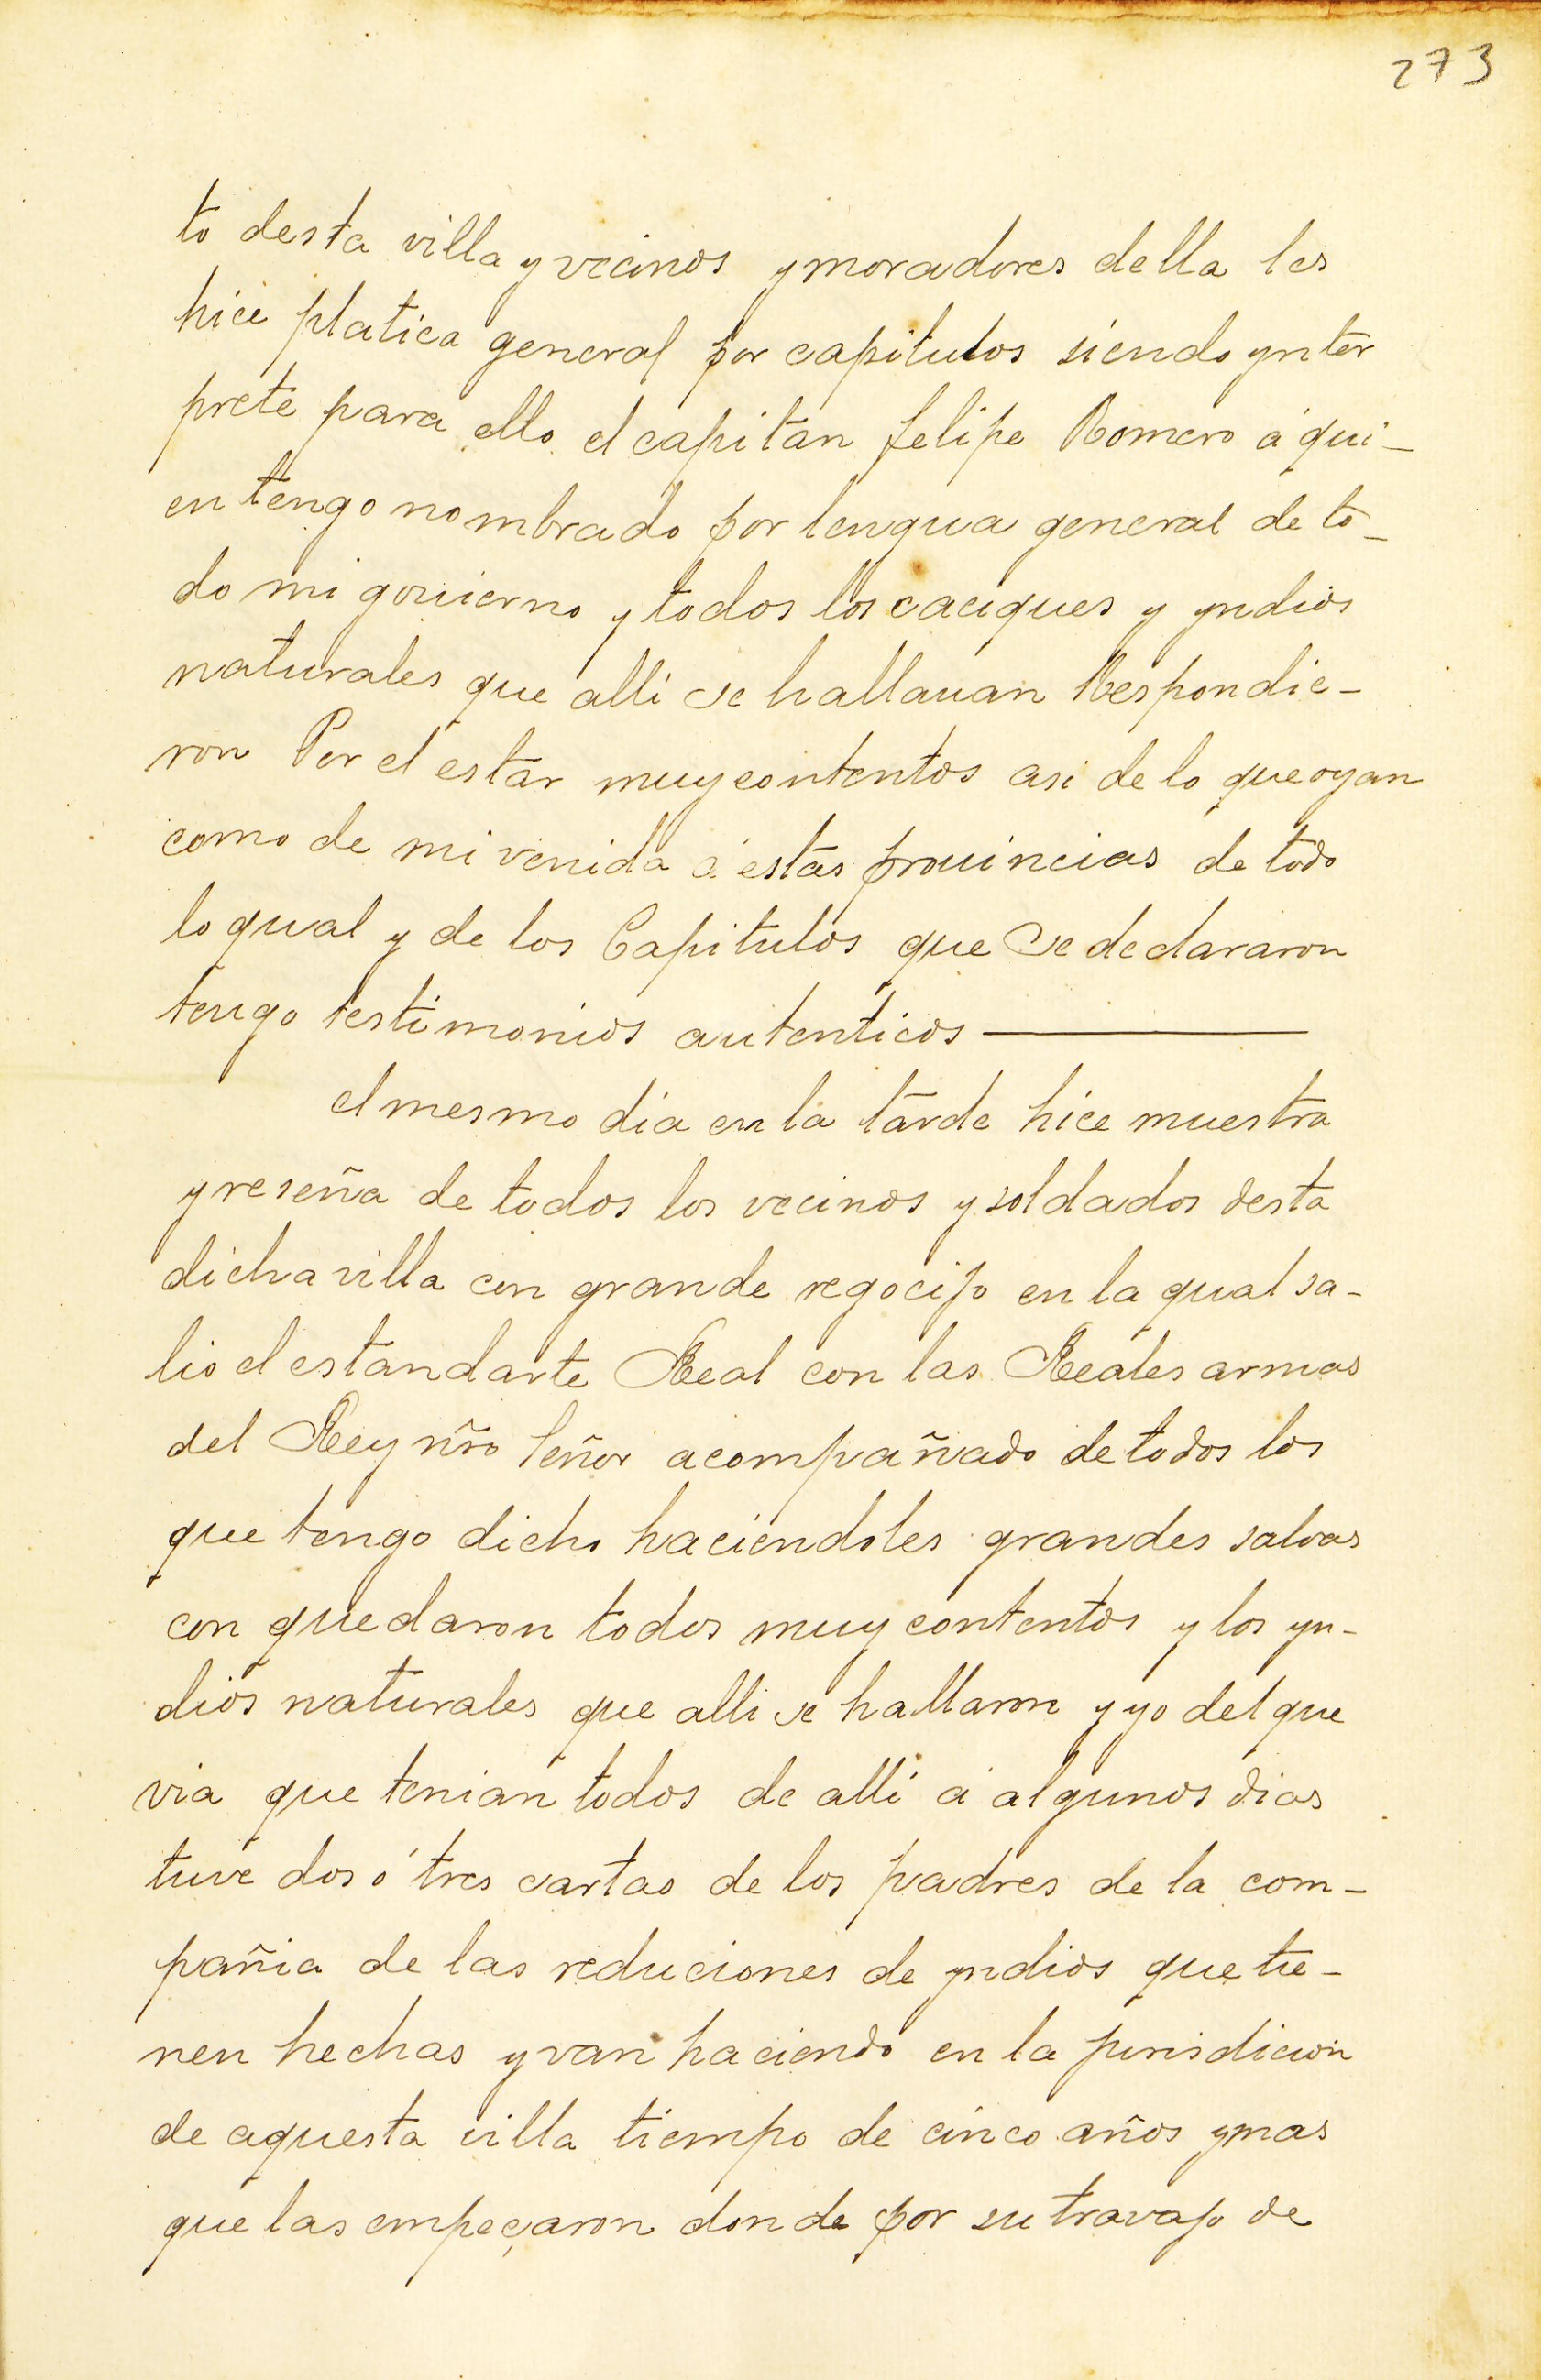 273
to desta villa y vecinos y moradores della les
hice platica general por capitulos siendo ynter
prete para ello el capitan felipe Romero á qui-
en tengo nombrado por lengua general de to-
do mi govierno y todos los caciques y yndios
naturales que alli se hallauan Respondie-
ron Por el estar muy contentos asi de lo que oyan
como de mi venida á estas prouincias de todo
lo qual y de los Capitulos que se declararon
tengo testimonios autenticos
el mesmo dia en la tarde hice muestra
y reseña de todos los vecinos y soldados desta
dicha villa con grande regocijo en la qual sa-
lio el estandarte Real con las Reales armas
del Rey nr̃o señor acompañado de todos los
que tengo dicho haciendoles grandes salvas
con quedaron todos muy contentos y los yn-
dios naturales que alli se hallaron y yo del que
via que tenian todos de alli á algunos dias
tuve dos ó tres cartas de los padres de la com-
pañia de las reduciones de yndios que tie-
nen hechas y van haciendo en la jurisdicion
de aquesta villa tiempo de cinco años y mas
que las empeçaron donde por su travajo de